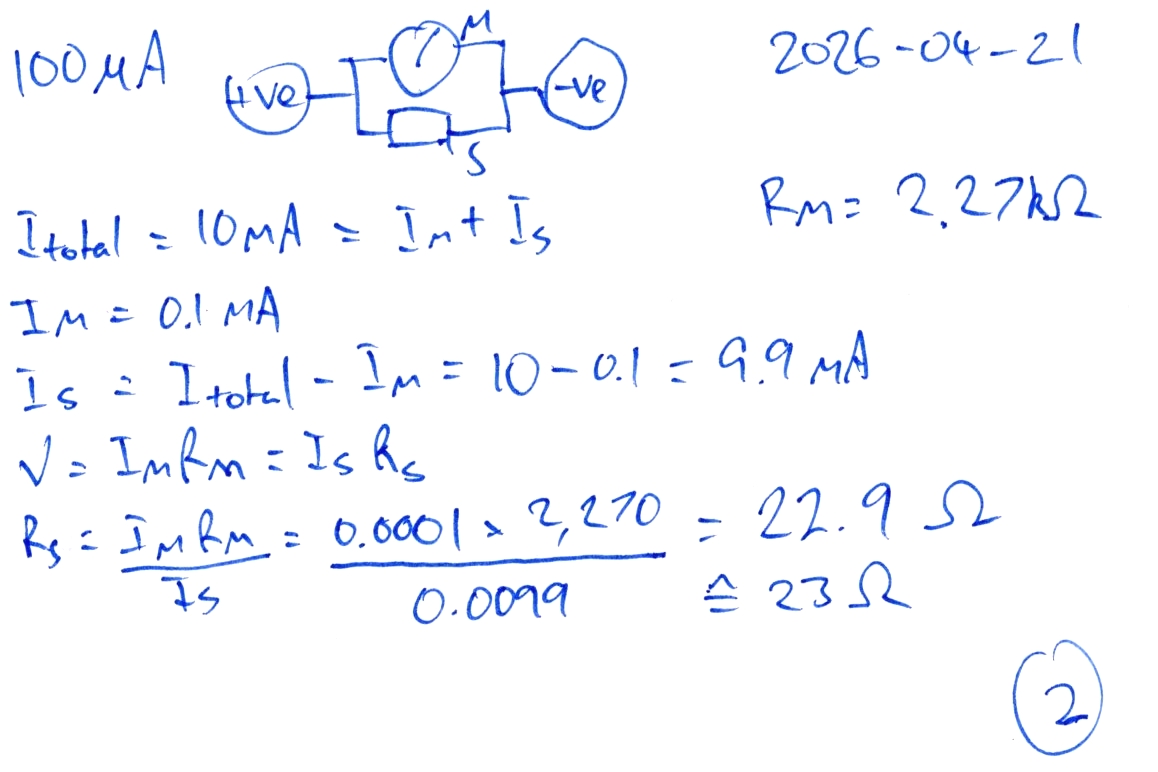 100 μA
2026-04-21
M
+ve
-ve
S
RM = 2.27kΩ
Itotal = 10 mA = IM + IS
IM = 0.1 mA
IS = Itotal - IM = 10 - 0.1 = 9.9 mA
V = IMRM = IS RS
RS = IM RM / IS = 0.0001 x 2,270 / 0.0099 = 22.9 Ω
≙ 23 Ω
2